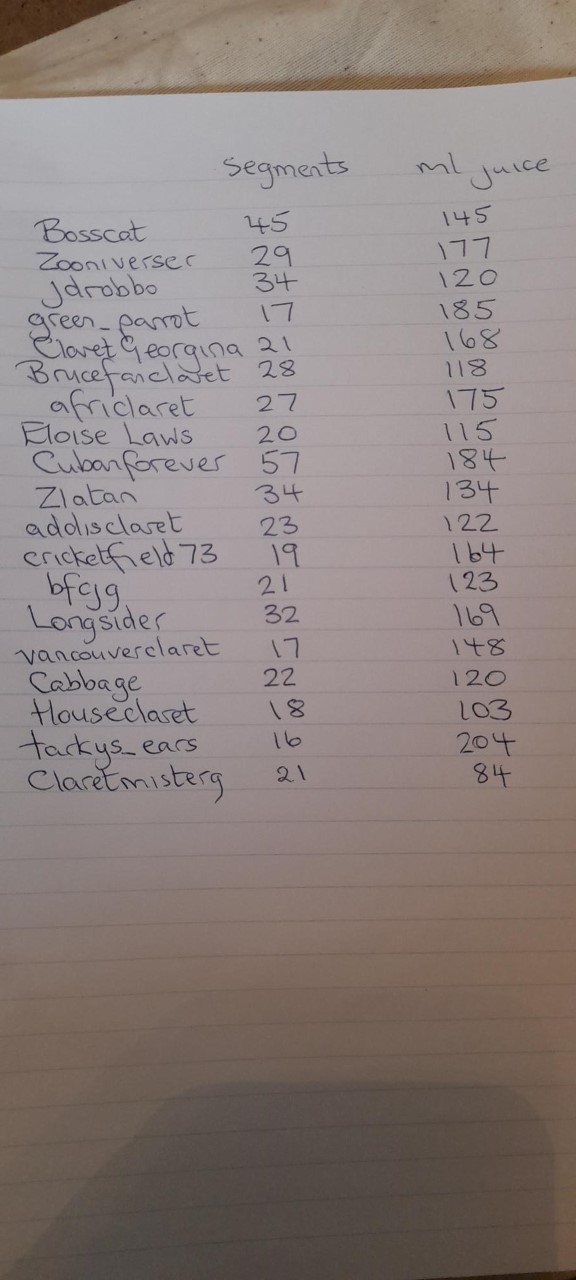 segments ml juice
Bosscat 45 145
Zooniverser 29 177
Jdrobbo 34 120
green_parrot 17 185
Claret Georgina 21 168
Brucefanclaret 28 118
africlaret 27 175
Eloise Laws 20 115
Cubanforever 57 184
Zlatan 34 134
addisclaret 23 122
cricketfield73 19 164
bfcjg 21 123
Longsider 32 169
vancouverclaret 17 148
Cabbage 22 120
Houseclaret 18 103
tarkys_ears 16 204
Claretmisterg 21 84